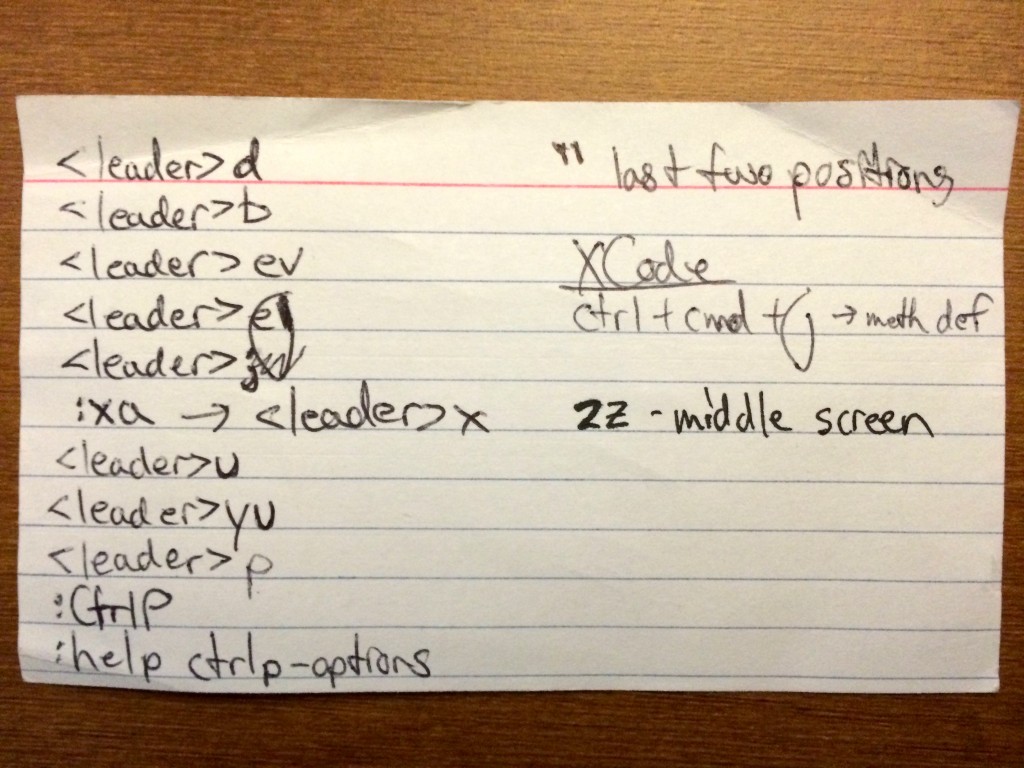 <leader>d
<leader>b
<leader>ev
<leader>
<leader>
:xa → <leader>x
<leader>u
<leader>yu
<leader>p
:CtrlP
:help ctrlp-options
'' last two positions
XCode
ctrl + cmd + j → meth def
zz - middle screen